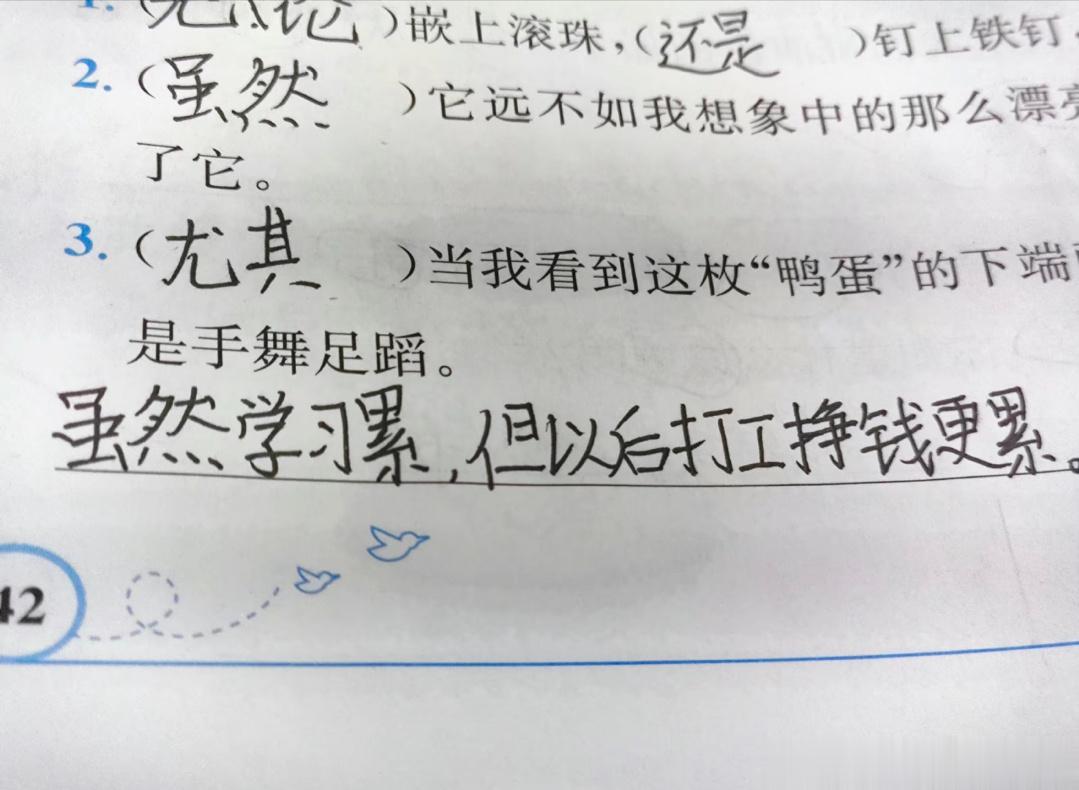 1. (无论)嵌上滚珠,(还是 )钉上铁钉,
2. (虽然 )它远不如我想象中的那么漂亮
了它。
3. (尤其 )当我看到这枚“鸭蛋”的下端
是手舞足蹈。
虽然学习累,但以后打工挣钱更累。
42